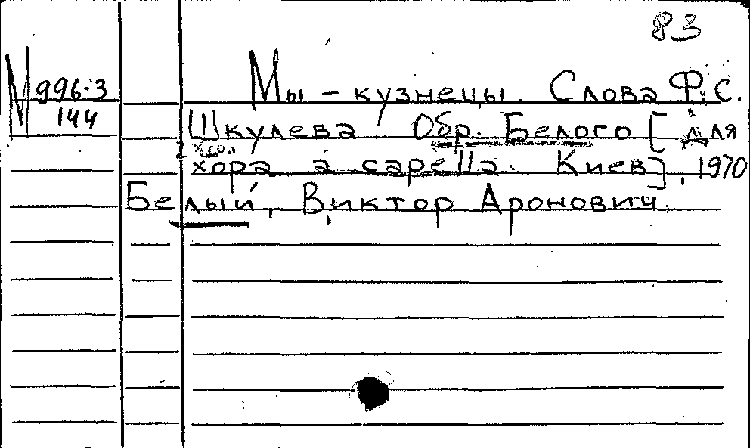 83
М 996-3
144
Мы - кузнецы. Слова Ф.С.
Шкулева. Обр. Белого [для
хора a capella. Киев], 1970
Белый, Виктор Аронович.